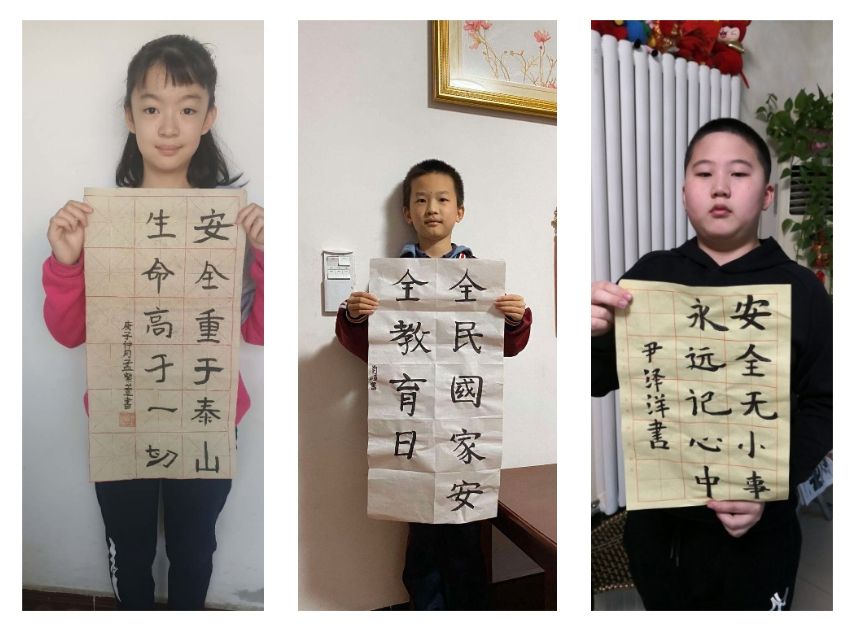 安全重于泰山
生命高于一切
全民國家安
全教育日
安全无小事
永远记心中
尹泽洋書